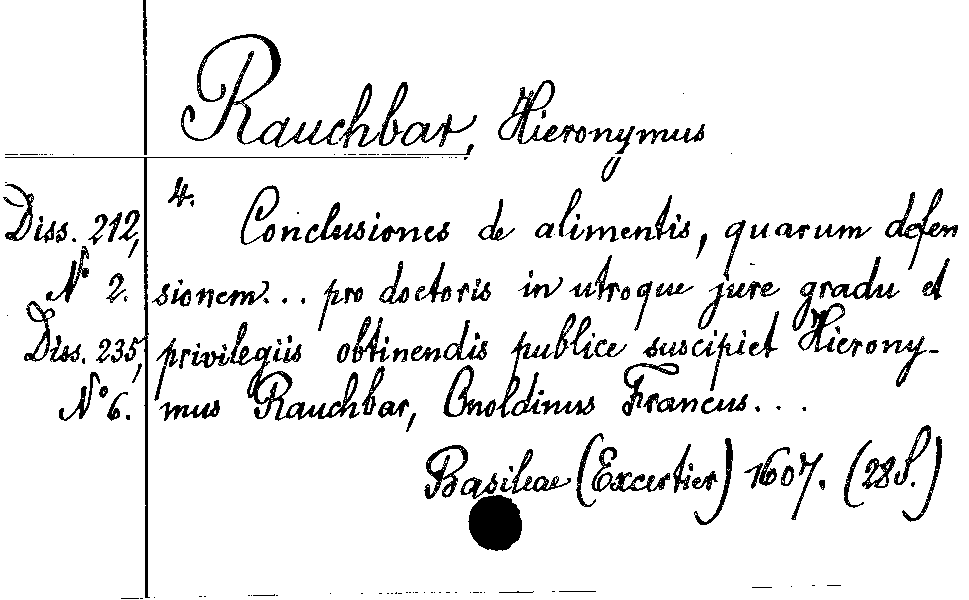 Rauchbar, Hieronymus
4.
Diss. 212, Conclusiones de alimentis, quarum defen
No 2. sionem... pro doctoris in utroque jure gradu et
Diss. 235, privilegiis obtinendis publice suscipiet Hierony-
No 6. mus Rauchbar, Onoldinus Francus...
Basileae (Excertier) 1607. (28 S.)